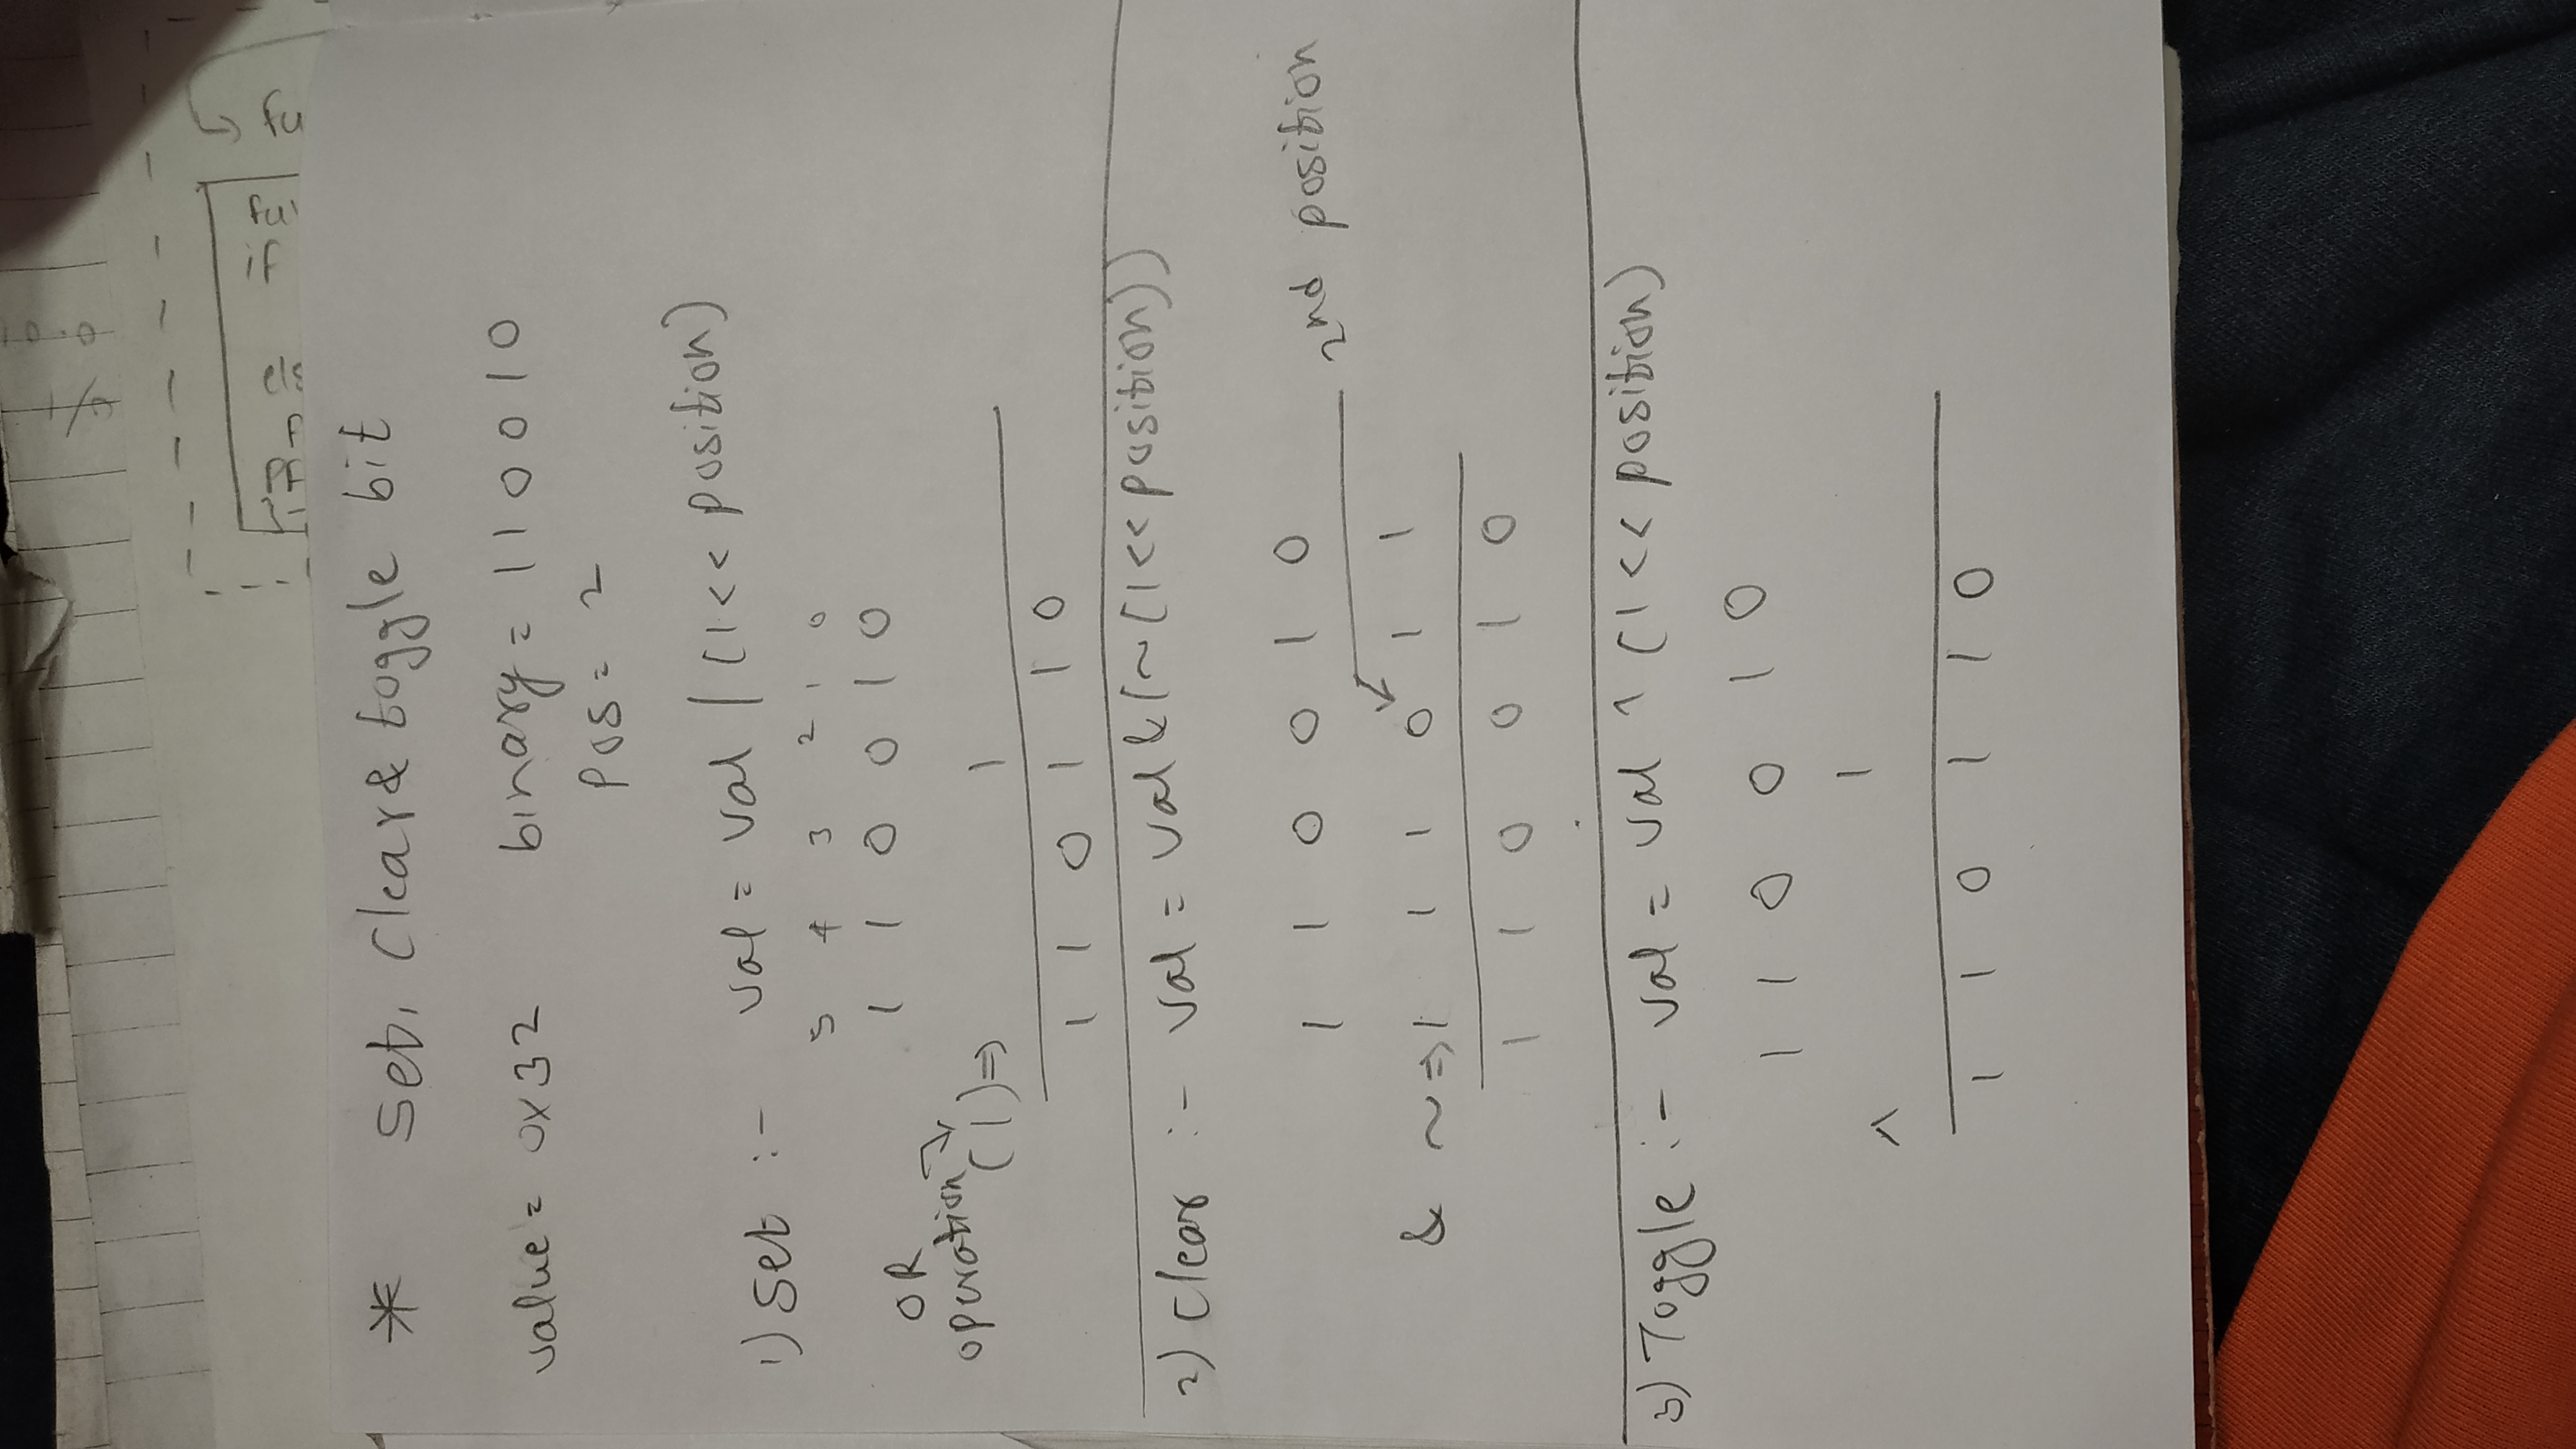 * Set, Clear & toggle bit
value = 0x32 binary = 110010
Pos = 2
1) Set :- val = val | (1<< position)
5 4 3 2 1 0
1 1 0 0 1 0
OR
operation
(|) => 1
1 1 0 1 1 0
2) Clear :- val = val & (~(1<< position))
1 1 0 0 1 0
2nd position
& ~ => 1 1 1 0 1 1
1 1 0 0 1 0
3) Toggle :- val = val ^ (1<< position)
1 1 0 0 1 0
1
^
1 1 0 1 1 0